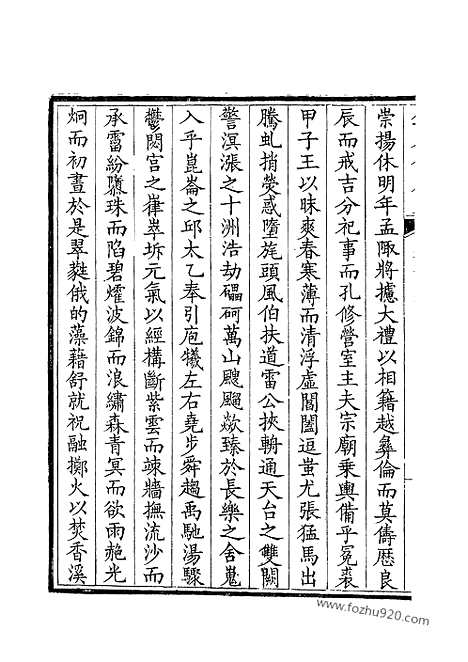 崇揚休明年孟陬將攄大禮以相籍越彝倫而莫儔歴良
辰而戒吉分祀事而孔修營室主夫宗廟乘輿備乎冕裘
甲子王以昧爽春寒薄而清浮虛閶闔逗蚩尤張猛馬出
騰虬捎熒惑墮旄頭風伯扶道雷公挾輈通天台之雙闕
警溟漲之十洲浩劫礧砢萬山颼飀欻臻於長樂之舍嵬
入乎崑崙之邱太乙奉引庖犧左右堯步舜趨禹馳湯驟
鬱閟宮之嵂崒坼元氣以經構斷紫雲而竦牆撫流沙而
承霤紛隳珠而陷碧燿波錦而浪繡森青冥而欲雨赩光
炯而初晝於是翠蕤俄的藻藉舒就祝融擲火以焚香溪
www.fozhu920.com